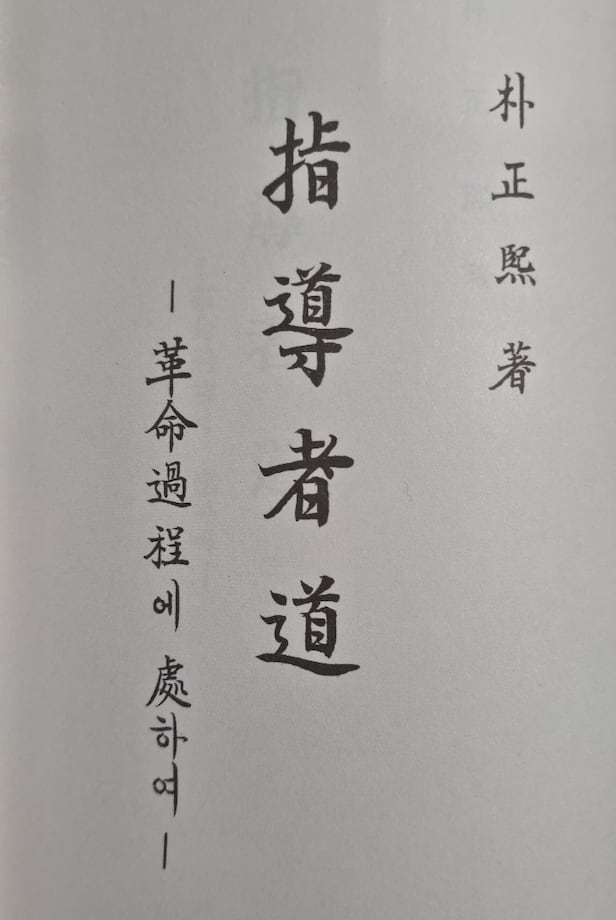 朴正熙 著
指導者道
－革命過程에 處하여－